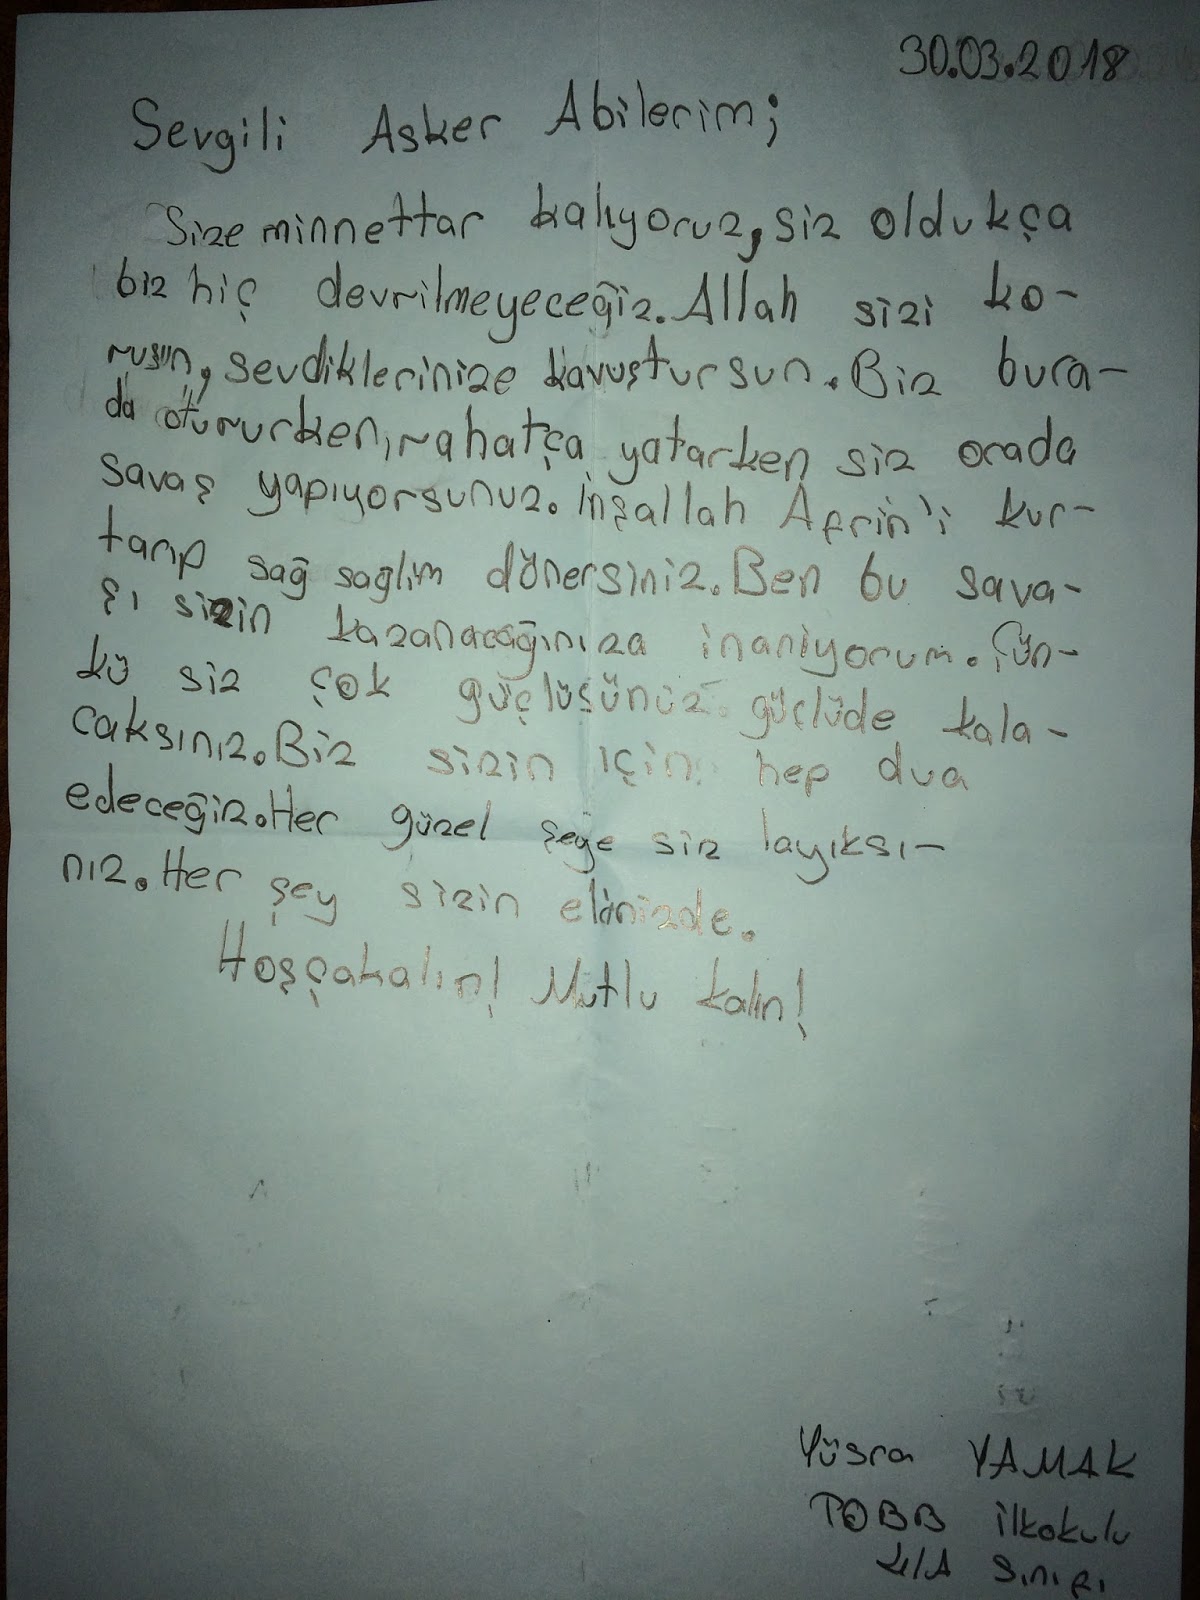 30.03.2018
Sevgili Asker Abilerim;
Size minnettar kalıyoruz, siz oldukça
biz hiç devrilmeyeceğiz. Allah sizi ko-
rusun, sevdiklerinize kavuştursun. Biz bura-
da otururken, rahatça yatarken siz orada
savaş yapıyorsunuz. İnşallah Afrin'i kur-
tarıp sağ sağlim dönersiniz. Ben bu sava-
şı sizin kazanacağınıza inaniyorum. Çün-
kü siz çok güçlüsünüz güçlüde kala-
caksınız. Biz sizin için hep dua
edeceğiz. Her güzel şeye siz layıksı-
nız. Her şey sizin elinizde.
Hoşçakalın! Mutlu kalın!
Yüsra YAMAK
TOBB ilkokulu
4/A Sınıfı